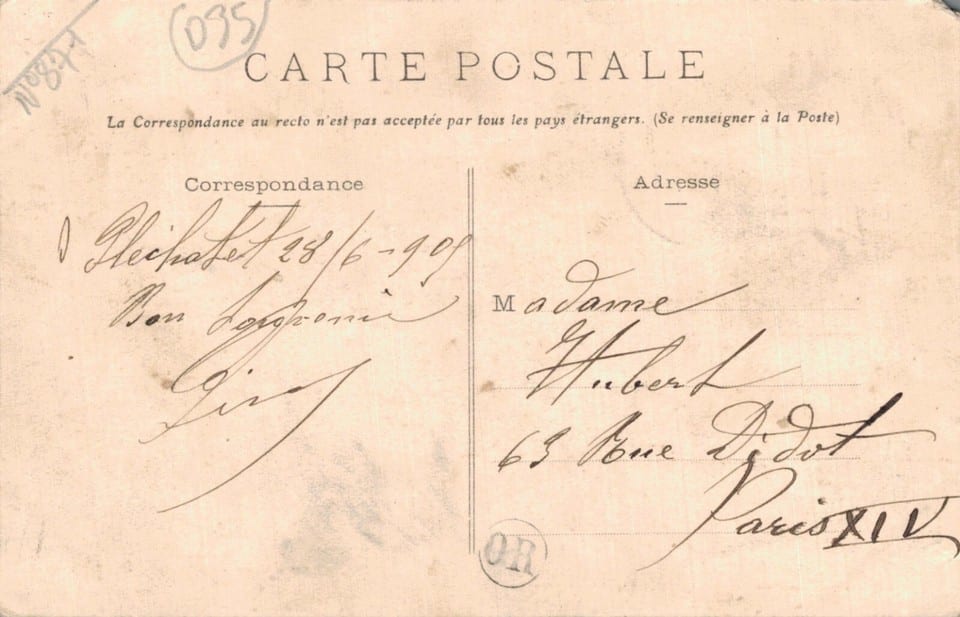 No 871
D35
CARTE POSTALE
La Correspondance au recto n'est pas acceptée par tous les pays étrangers. (Se renseigner à la Poste)
Correspondance
Pléchatel 28/6-905
Bon Souvenir
Adresse
Madame
Hubert
63 Rue Didot
Paris XIV
OR